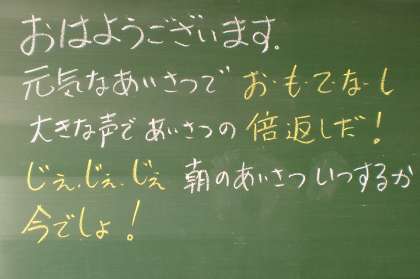 おはようございます。
元気なあいさつで お・も・て・な・し
大きな声であいさつの 倍返しだ！
じぇ、じぇ、じぇ 朝のあいさついつするか
今でしょ！